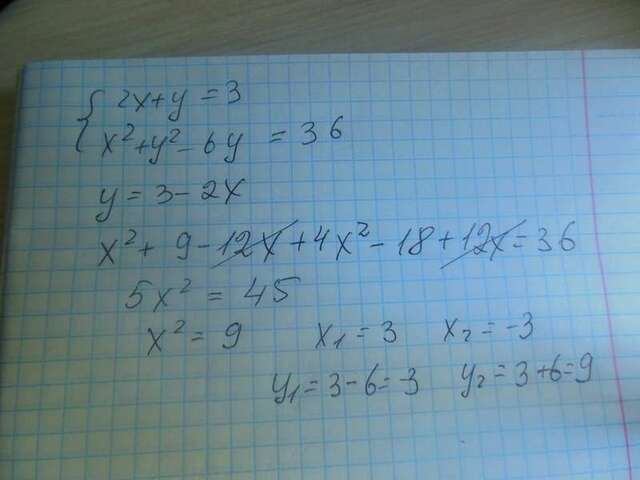 { 2x+y = 3
x²+y²-6y = 36
y = 3-2x
x² + 9 - 12x + 4x² - 18 + 12x = 36
5x² = 45
x² = 9 x₁ = 3 x₂ = -3
y₁ = 3-6 = -3 y₂ = 3+6 = 9